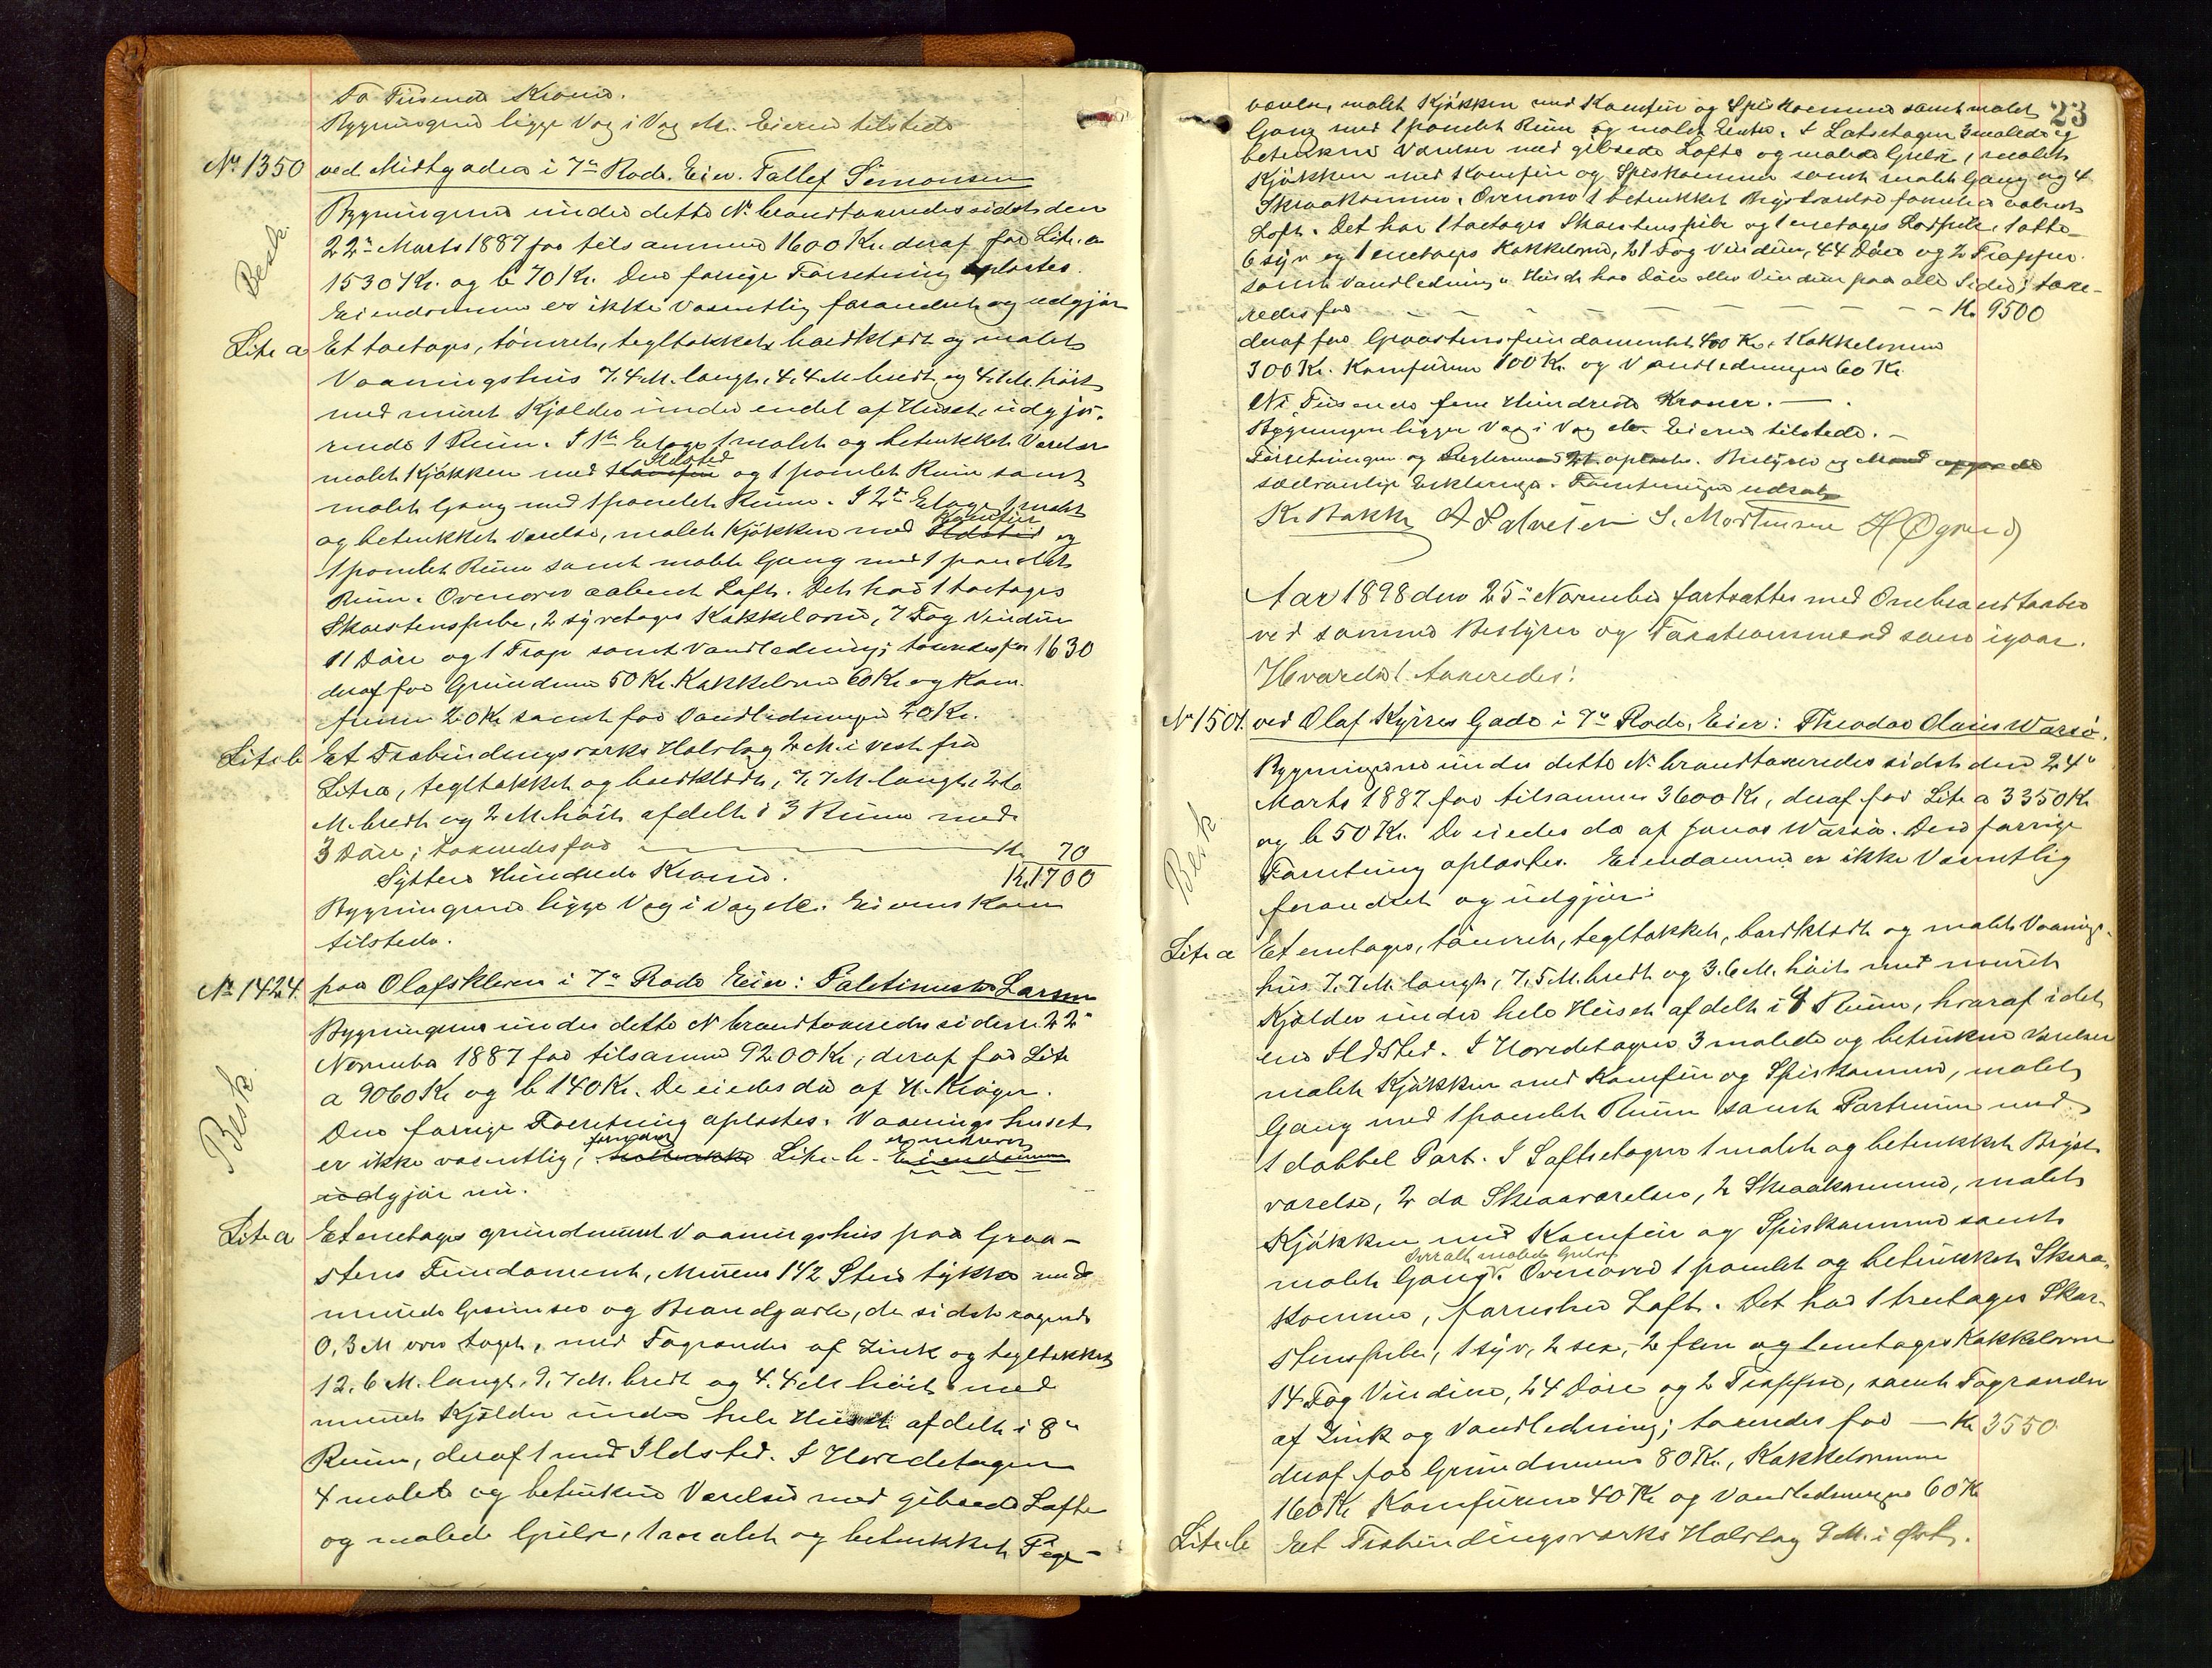 To Tusende Kroner.
Bygningerne ligge Væg i Væg etc. Eieren tilstede
No 1350 ved Midtgaden i 7de Rode. Eier. Tallef Simonsen
Besk.
Bygningerne under dette No brandtaxeredes sidst den
22de Marts 1887 for tilsammen 1600 Kr. deraf for Litr. a
1530 Kr. og b 70 Kr. Den forrige Forretning oplæstes.
Eiendommen er ikke væsentlig forandret og udgjør
Litr a Et toetages, tømret, tegltækket, bordklædt og malet
Vaaningshus 7,4 M. langt, 4,4 M bredt og 4,1 M. høit
med muret Kjælder under endel af Huset, udgjø-
rende 1 Rum. I 1ste Etage 1 malet og betrukket Værelse
malet Kjøkken med Komfur Ildsted og 1 panelet Rum samt
malet Gang med 1 panelet Rum. I 2den Etage 1 malet
og betrukket Værelse, malet Kjøkken med Ildsted Komfur og
1 panelet Rum samt malet Gang med 1 panelet
Rum. Ovenover aabent Loft. Det har 1 toetages
Skorstenspibe, 2 syvetages Kakkelovne, 7 Fag Vinduer
11 Døre og 1 Trap samt Vandledning; taxeredes for 1630
deraf for Grundmur 50 Kr. Kakkelovne 60 Kr og Kom-
furen 20 Kr samt for Vandledningen 20 Kr.
Litr b Et Træbindingsværks Halvtag 2 M. i Vest fra
Litr a, tegltækket og bordklædt, 7,7 M. langt, 2,
M. bredt og 2 M. høit afdelt i 3 Rum med
3 Døre; taxeredes for Kr 70
Sytten Hundrede Kroner. Kr 1700
Bygningerne ligge Væg i Væg etc. Eierens Kone
tilstede.
No 1424. paa Olafskleven i 7de Rode Eier: Toldtinusted Larsen
Besk.
Bygningerne under dette No brandtaxeredes sidst 22de
November 1887 for tilsammen 9200 Kr, deraf for Litr
a 9060 Kr og b 140 Kr. De eiedes da af H. Krøger.
Den forrige Forretning oplæstes. Vaaningshuset
er ikke væsentlig forandret, Litr. b. er nedrevet Eiendommen
udgjør nu.
Litr a Et enetages grundmuret Vaaningshus paa Graa-
stens Fundament, Murene 1 1/2 Sten tykke med
murede Gesimser og Brandgavle, de sidste ragende
0,3 M over taget, med Tagrender af Zink og tegltækket
12,6 M. langt, 9,7 M. bredt og 4,4 M høit med
muret Kjælder under hele Huset afdelt i 8
Rum, deraf 1 med Ildsted. I Hovedetagen
4 malede og betrukne Værelser med gibsede Lofte
og malede Gulve, 1 malet og betrukket Pige-
23
værelse, malet Kjøkken med Komfur og Spiskammer samt malet
Gang med 1 panelet Rum og malet Entre. I Loftsetagen 3 malede og
betrukne Værelser med gibsede Lofte og malede Gulve, malet
Kjøkken med Komfur og Spiskammer samt malet Gang og 4
Skraakammer. Ovenover 1 betrukket Kvistværelse forøvrigt aabent
Loft. Det har 1 toetages Skorstenspibe og 1 enetages Lodpibe, 1 otte-
6 syv og 1 enetages Kakkelovne, 21 Fag Vinduer, 44 Døre og 2 Trapper
samt Vandledning. Huset har Døre eller Vinduer paa alle Sider; taxe-
redes for Kr 9500
deraf for Graastensfundamentet 400 Kr. Kakkelovnene
300 Kr. Komfurene 100 Kr. og Vandledningen 60 Kr
Ni Tusende fem Hundrede Kroner.
Bygningen ligger Væg i Væg etc. Eieren tilstede.
Forretningen og oplæstes. Bestyrer og Mænd afgav de
sædvanlige Erklæringer. Forretningen udsat
K. Bakke A Salvesen S. Mortensen H Øgrey
Aar 1898 den 25de November fortsattes med Ombrandtaxter
ved samme Bestyrer og Taxationsmænd som igaar.
Hvorda! taxeredes:
No 1501. ved Olaf Kyrres Gade i 7de Rode, Eier: Theodor Olaus Warsø.
Besk.
Bygningerne under dette No brandtaxeredes sidst den 24de
Marts 1887 for tilsammen 3600 Kr, deraf for Litr a 3350 Kr
og b 50 Kr. De eiedes da af Jonas Warsø. Den forrige
Forretning oplæstes. Eiendommen er ikke væsentlig
forandret og udgjør:
Litr a Et enetages, tømret, tegltækket, bordklædt og malet Vaanings-
hus 7,7 M. langt, 7,5 M. bredt og 3,6 M. høit med muret
Kjælder under hele Huset afdelt i 4 Rum, hvoraf i det
ene Ildsted. I Hovedetagen 3 malede og betrukne Værelser
malet Kjøkken med Komfur og Spiskammer, malet
Gang med 1 panelet Rum samt Portrum med
1 dobbel Port. I Loftsetagen 1 malet og betrukket Kvist-
værelse, 2 do Skraaværelser, 2 Skraakammer, malet
Kjøkken med Komfur og Spiskammer samt
malet Gang. Overalt malede Gulve Ovenover 1 panelet og betrukket Skraa-
kammer, forøvrigt Loft. Det har 1 treetages Skor-
stenspibe, 1 syv, 2 sex, 2 fem og 1 enetages Kakkelovne
14 Fag Vinduer, 24 Døre og 2 Trapper, samt Tagrender
af Zink og Vandledning; taxeredes for Kr 3550
deraf for Grundmuren 80 Kr., Kakkelovnene
160 Kr Komfurene 40 Kr og Vandledningen 60 Kr
Litr. b Et Træbindingsværks Halvtag 9 M. i Øst.